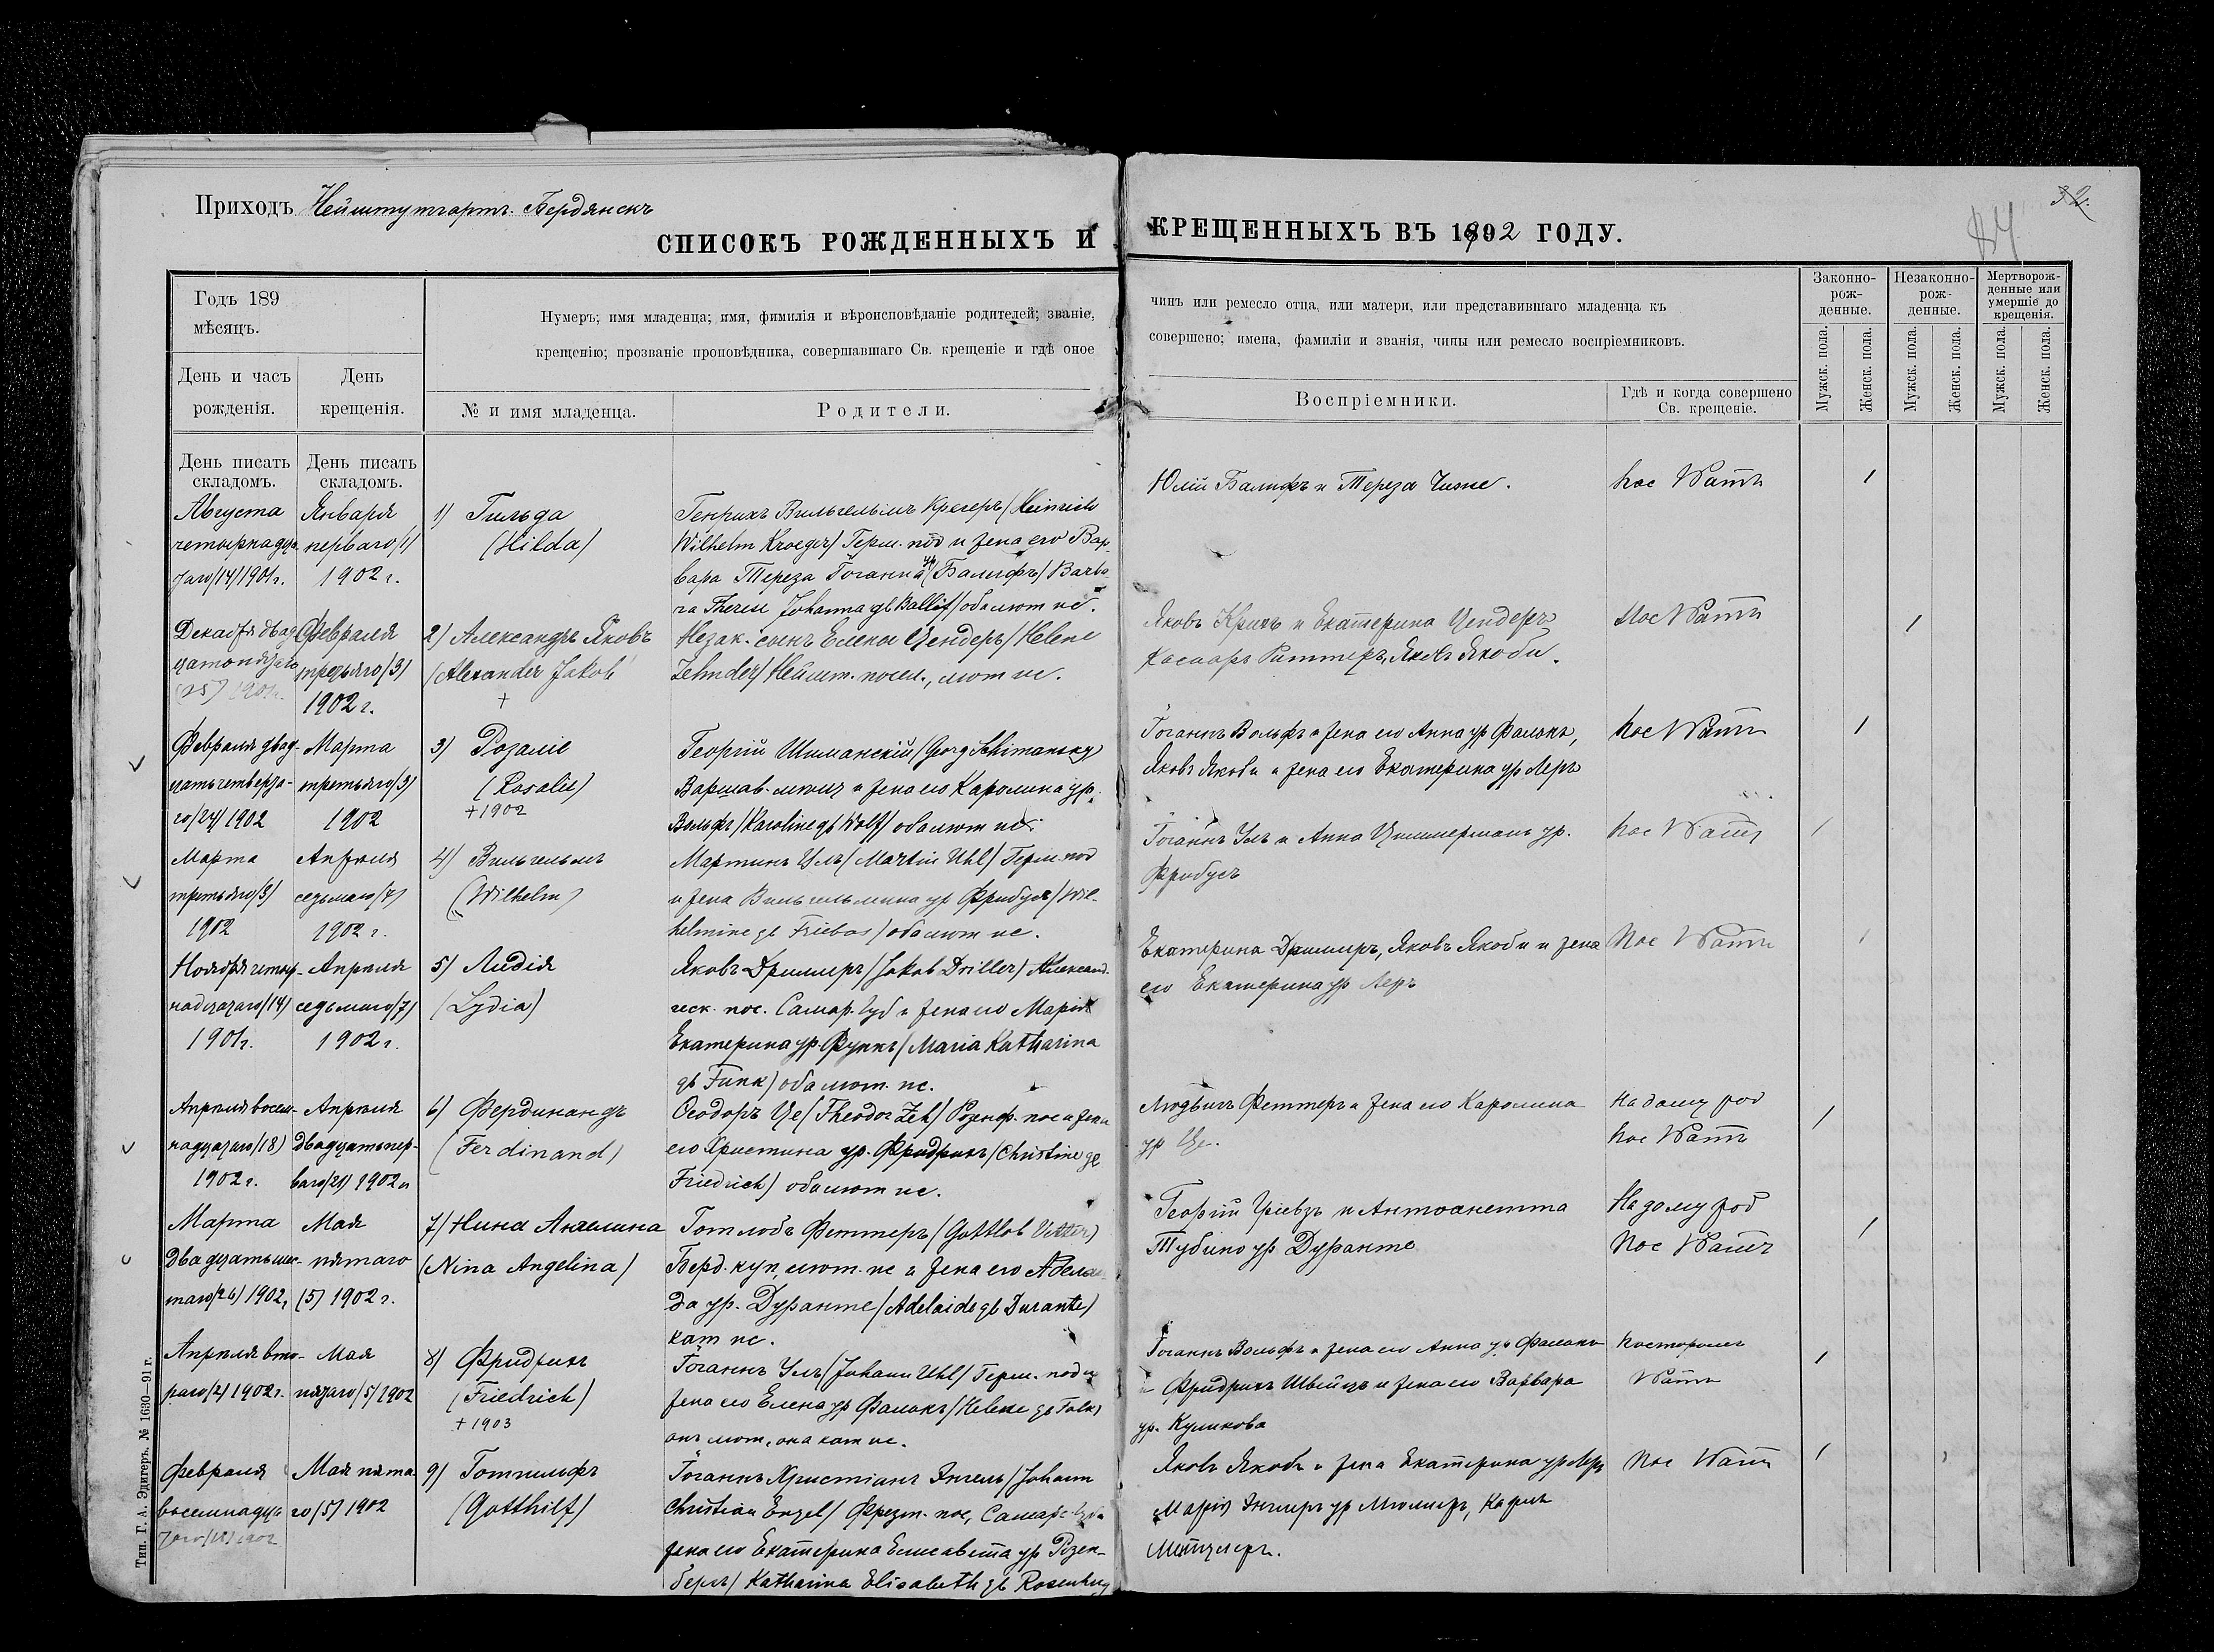 32.
84
Приходъ Нейштутгартъ-Бердянскъ
СПИСОКЪ РОЖДЕННЫХЪ И КРЕЩЕННЫХЪ ВЪ 1902 ГОДУ.
Годъ 189
мѣсяцъ.
День и часъ
рожденія.
День
крещенія.
Нумеръ; имя младенца; имя, фимилія и вѣроисповѣданіе родителей; званіе,
крещенію; прозваніе проповѣдника, совершавшаго Св. крещеніе и гдѣ оное
№ и имя младенца.
Родители.
чинъ или ремесло отца, или матери, или представившаго младенца къ
совершено; имена, фамиліи и званія, чины или ремесло воспріемниковъ.
Воспріемники.
Гдѣ и когда совершено
Св. крещеніе.
Законно-
рож-
денные.
Незаконно-
рож-
денные.
Мертворож-
денные или
умершіе до
крещенія.
Мужск. пола.
Женск. пола.
Мужск. пола.
Женск. пола.
Мужск. пола.
Женск. пола.
День писать
складомъ.
День писать
складомъ.
Августа
четырнадца-
таго/14/1901г.
Января
перваго/1/
1902 г.
1) Гильда
(Hilda)
Генрихъ Вильгельмъ Крегеръ/Heinrich
Wilhelm Kroeger/ Герм. под и жена его Вар-
вара Тереза Іоганна ур. (Балифъ/ Barba-
ra Therese Johanna gb Ballif/ оба лют ис.
Юлій Балифъ и Тереза
пос
1
Декабря двад
цатопятаго
(25) 1901г.
Февраля
третьяго/3/
1902 г.
2) Александръ Яковъ
(Alexander Jakob
+
Незак. сынъ Елены Цендеръ/Helene
Zehnder/ Нейшт. посел., лют ис.
Яковъ и Екатерина Цендеръ
Каспаръ Риттеръ, Яковъ Якоби.
пос
1
Февраля двад-
цать четверта-
го/24/ 1902
Марта
третьяго/3/
1902
3) Розалие
(Rosalie)
+1902
Георгій Шиманскій/Georg Schimansky
Варшав. и жена его Каролина ур.
Вольфъ/Karoline gb Wolf/ оба лют ис.
Іоганнъ Вольфъ и жена его Анна ур Фалькъ,
Яковъ Якоби и жена его Екатерина ур Леръ
пос
1
Марта
третьяго/3/
1902
Апреля
седьмаго/7/
1902 г.
4) Вильгельмъ
(Wilhelm)
Мартинъ Улъ/Martin Uhl/ Герм. под
и жена Вильгельмина ур Фрибусъ/Wil-
helmine gb Friebos/ оба лют ис.
Іоганнъ Улъ и Анна Циммерманъ ур.
Фрибусъ
пос
1
Ноября четыр-
надцатаго/14/
1901г.
Апреля
седьмаго/7/
1902 г.
5) Лидія
(Lydia)
Яковъ Дриллеръ/Jakob Driller/ Александ-
геск. пос. Самар. губ и жена его Марія
Екатерина ур. Функъ/Maria Katharina
gb Funk/ оба лют. ис.
Екатерина Дриллеръ, Яковъ Якоби и жена
его Екатерина ур Леръ
пос
1
Апреля восем-
надцатаго/18)
1902 г.
Апреля
двадцать пер-
ваго/21/ 1902 г.
6) Фердинандъ
(Ferdinand)
Ѳеодоръ Це/Theodor Zeh/ Розенф. пос и жена
его Христина ур. Фридрихъ/Christine gb
Friedrich) оба лют ис.
Людвигъ Феттеръ и жена его Каролина
ур Це.
на дому род
пос
1
Марта
двадцать шес-
таго/26/ 1902,
Мая
пятаго
(5) 1902 г.
7) Нина Ангелина
(Nina Angelina)
Готлобъ Феттеръ/Gottlob Vetter)
Берд. куп., лют. ис и жена его Аделаи
да ур. Дуранте/Adelaide gb Durante/
кат ис.
Георгій и Антоанетта
Тубино ур Дуранте
На дому род
пос
1
Апреля вто-
раго/2/ 1902г.
Мая
пятаго/5/1902
8) Фридрихъ
(Friedrich)
+1903
Іоганнъ Улъ/Johann Uhl/ Герм. под и
жена его Елена ур Фалькъ/Helene gb Falk)
онъ лют., она кат ис.
Іоганнъ Вольфъ и жена его Анна ур Фалькъ
и Фридрихъ Швейцъ и жена его Варвара
ур. Куликова
1
Февраля
восемнадца
таго/18/1902
Мая пята
го/5/ 1902
9) Готтгильфъ
(Gotthilf)
Іоганнъ Христіанъ Энгель/Johann
Christian Engel/ Фрезт. пос, Самарс. губ и
жена его Екатерина Елисавета ур Розен-
бергъ/ Katharina Elisabeth gb Rosenberg
Яковъ Якоби и жена Екатерина ур Леръ
Марія ур Мюллеръ, Карлъ
Метцлеръ.
пос
1
Тип. Г. А. Эдигеръ. № 1630—91 г.